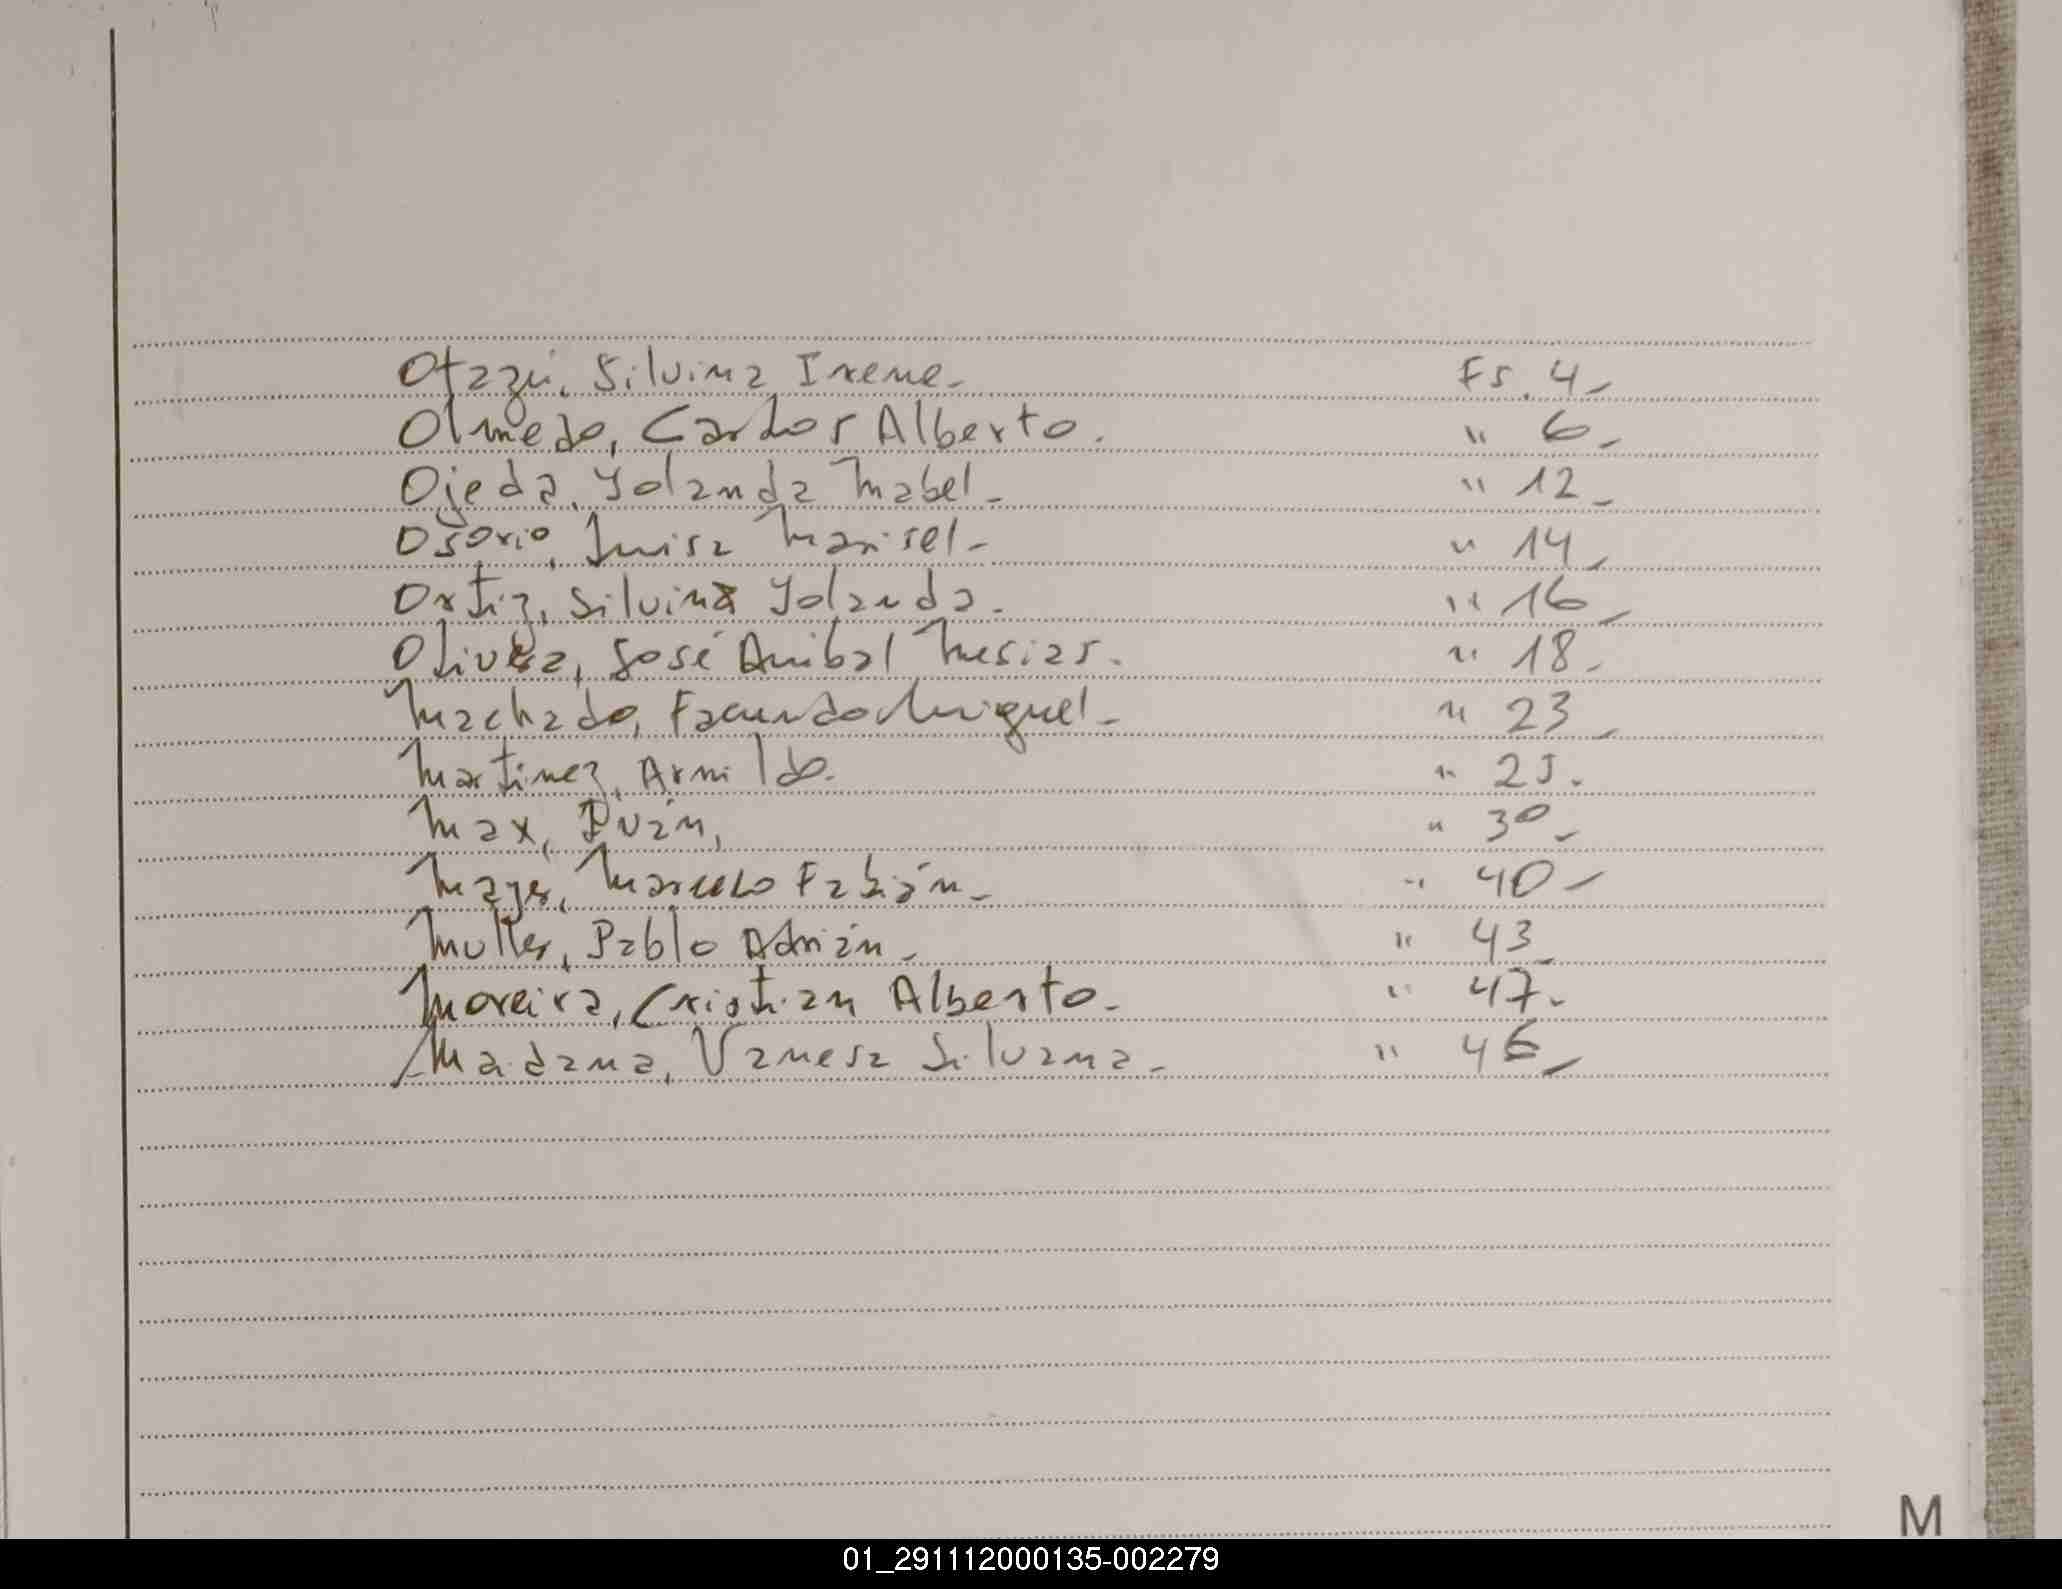 Otazú, Silvina Irene. Fs. 4.
Olmedo, Carlos Alberto. " 6.
Ojeda, Yolanda Mabel. " 12.
Osorio, Luisa Marisel. " 14.
Ortiz, Silvina Yolanda. " 16.
Olivera, José Anibal Mesias. " 18.
Machado, Facundo Miguel. " 23.
Martinez, Arnildo. " 25.
Max, Iván. " 30.
Mayer, Marcelo Fabián. " 40.
Muller, Pablo Adrián. " 43.
Moreira, Cristian Alberto. " 47.
Maidana, Vanesa Silvana. " 46.
M
01_291112000135-002279